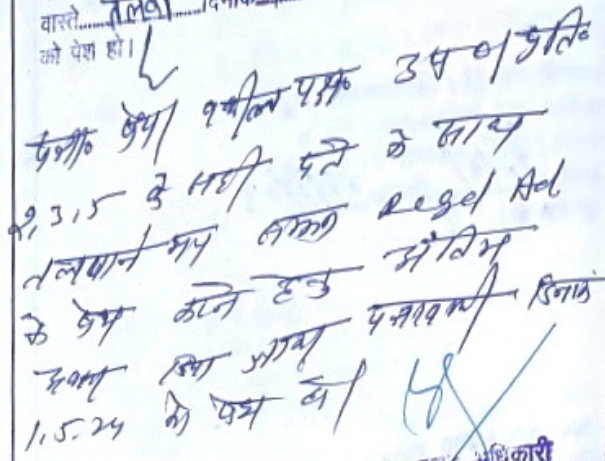 वास्ते.....तलबी.....दिनांक
को पेश हो।
पत्रा० पेश। वकील पक्ष० उप० प्रति०
2,3,5 के सही पते के साथ
तलवाने मय Regd Ad
के पेश करने हेतु अंतिम
अवसर दिया जाता पत्रावली दिनांक
1.5.24 को पेश हो।
अधिकारी